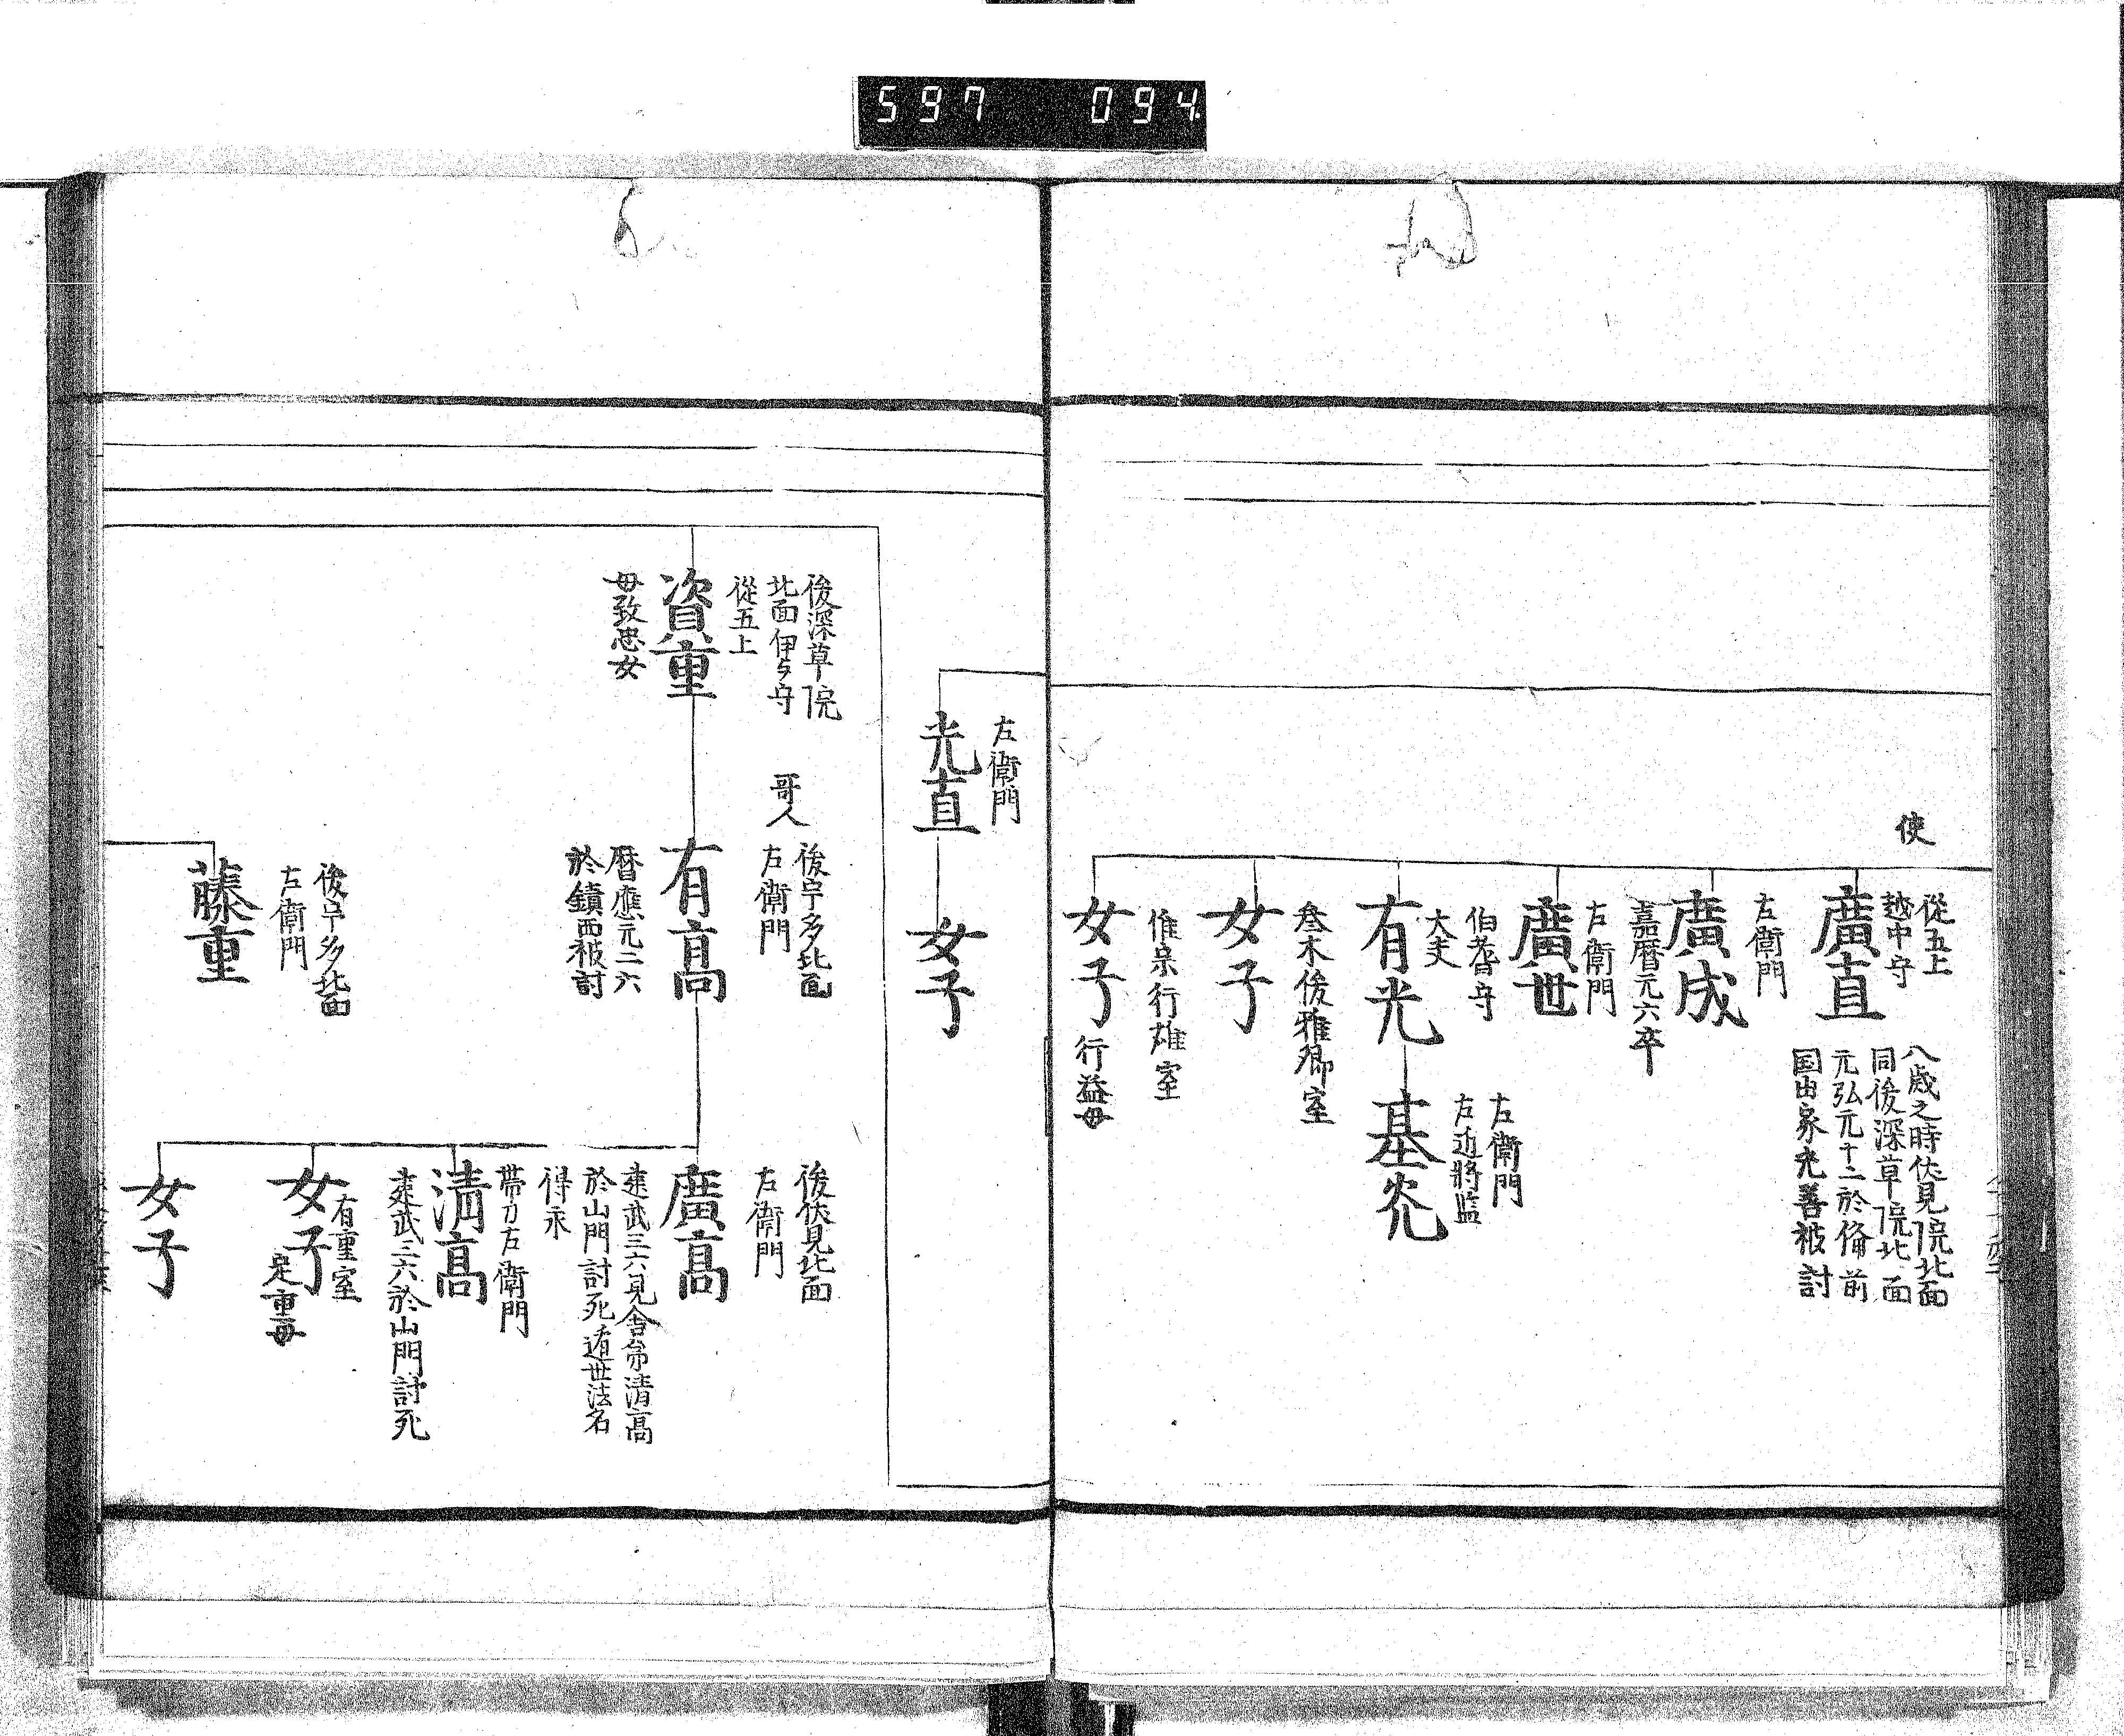 597 094
使
従五上
越中守
廣直
八歳之時伏見院北面
同後深草院北面
元弘元十二於備前
国由泉光善被討
左衛門
廣成
嘉暦元六卒
左衛門
廣世
伯耆守
大夫
有光
左衛門
左近将監
基光
叄木俊雅卿室
女子
惟宗行雄室
女子
行益母
左衛門
光直
女子
後深草院
北面伊与守
従五上
資重
母致忠女
哥人
後宇多北面
左衛門
有高
暦應元二六
於鎮西被討
後伏見北面
左衛門
廣高
建武三六見舎弟清高
於山門討死遁世法名
得永
帯刀左衛門
清高
建武三六於山門討死
有重室
女子
定重母
女子
後宇多北面
左衛門
藤重